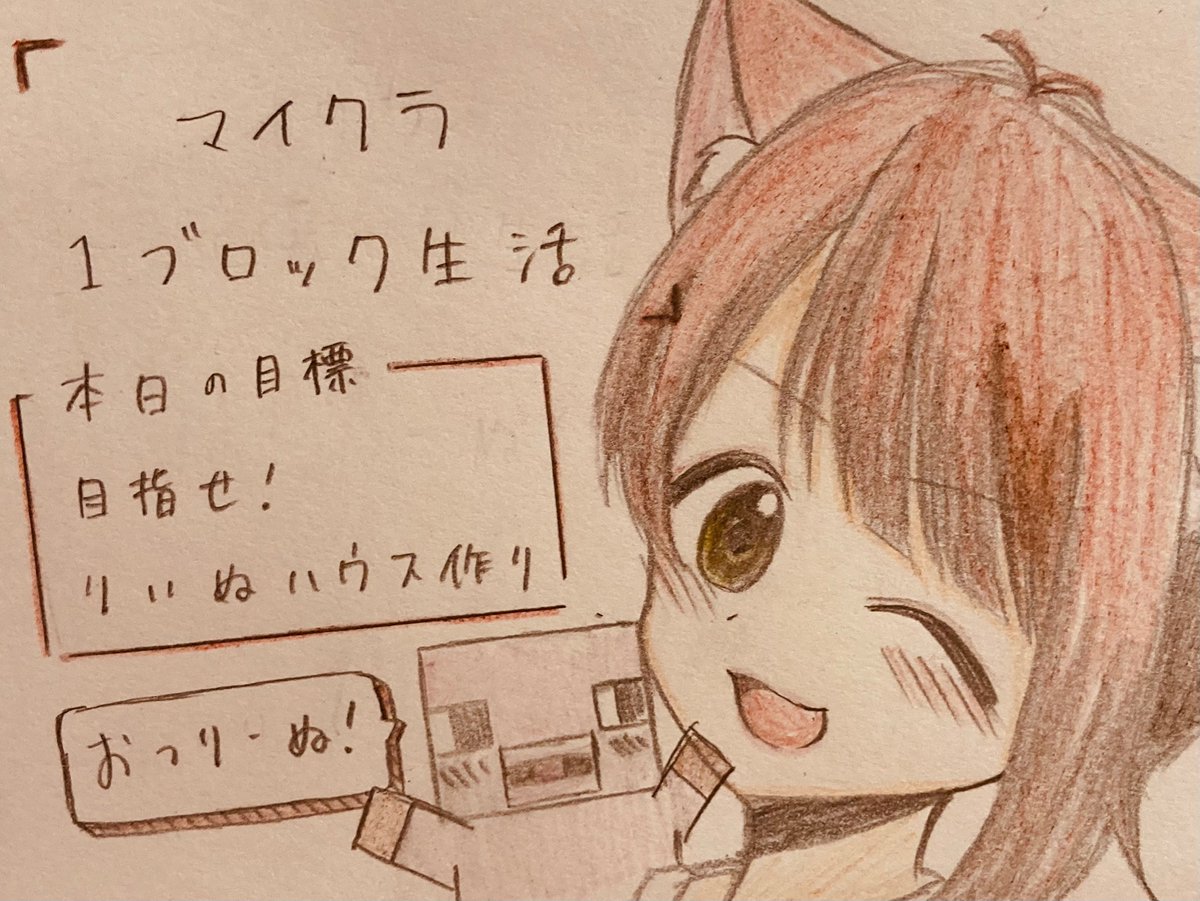 マイクラ
1ブロック生活
本日の目標
目指せ!
りいぬハウス作り
おつりーぬ!